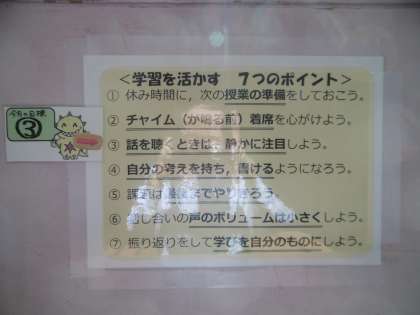 ＜学習を活かす　７つのポイント＞
① 休み時間に，次の授業の準備をしておこう。
② チャイム（が鳴る前）着席を心がけよう。
③ 話を聴くときは，静かに注目しよう。
④ 自分の考えを持ち，書けるようになろう。
⑤ 課題は最後までやりきろう。
⑥ 話し合いの声のボリュームは小さくしよう。
⑦ 振り返りをして学びを自分のものにしよう。
今月の目標
③